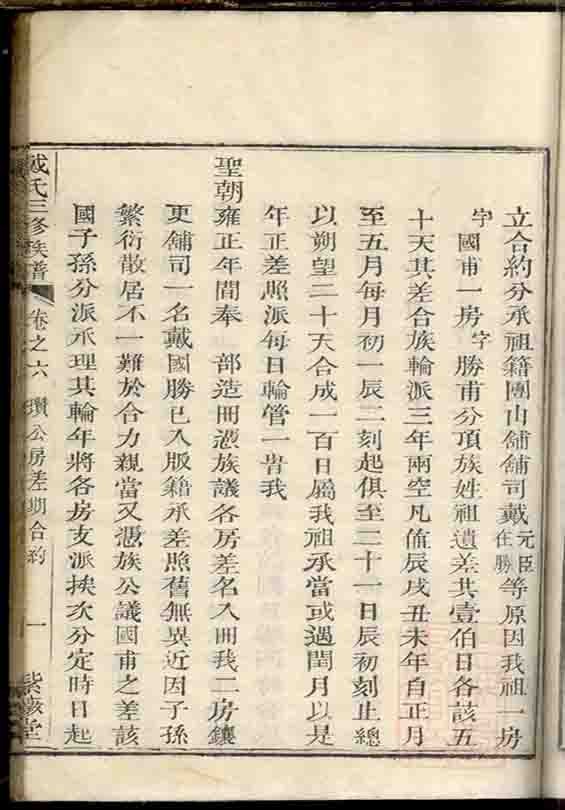 立合約分承祖籍團山舖舖司戴元臣在勝等原因我祖一房
字國甫一房字勝甫分頂族姓祖遺差共壹伯日各該五
十天其差合族輪派三年兩空凡值辰戌丑未年自正月
至五月每月初一辰二刻起俱至二十一日辰初刻止總
以朔望二十天合成一百日屬我祖承當或遇閏月以是
年正差照派每日輪管一㫺我
聖朝雍正年間奉 部造冊憑族議各房差名入冊我二房鑲
更舖司一名戴國勝已入版籍承差照舊無異近因子孫
繁衍散居不一難於合力親當又憑族公議國甫之差該
國子孫分派承理其輪年將各房支派挨次分定時日起
戴氏三修族譜 卷之六 瓚公房差期合約 一 紫 堂